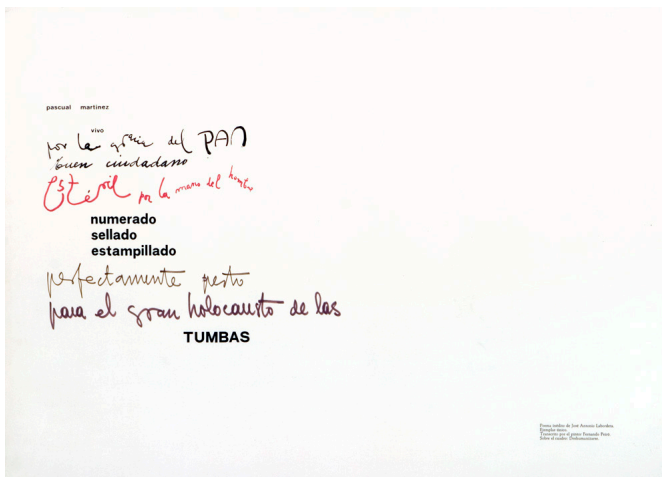 pascual martinez
vivo
por la gracia del PAN
buen ciudadano
Estéril por la mano del hombre
numerado
sellado
estampillado
perfectamente presto
para el gran holocausto de las
TUMBAS
Poema inédito de José Antonio Labordeta.
Ejemplar único.
Transcrito por el pintor Fernando
Sobre el cuadro: Deshumanizarte.